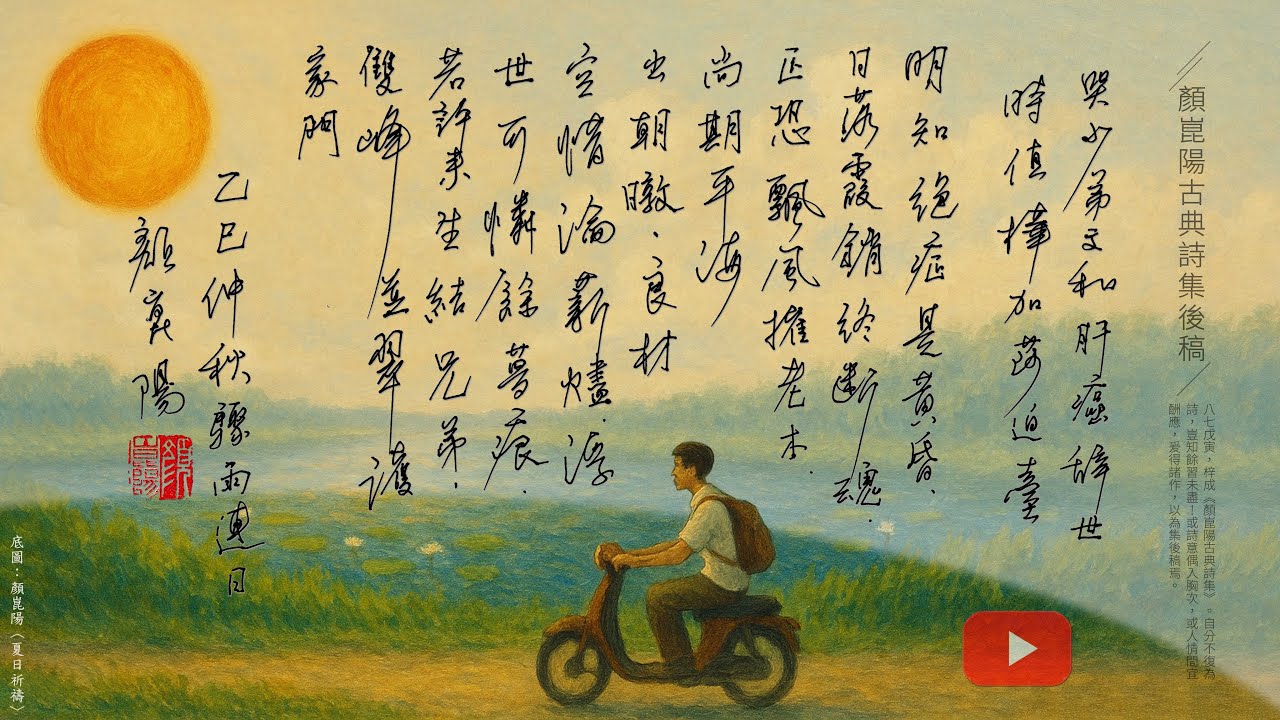 顏崑陽古典詩集後稿
八七戊寅，梓成《顏崑陽古典詩集》。自分不復為
詩，豈知餘習未盡！或詩意偶入胸次，或人情間宜
酬應，爰得諸作，以為集後稿焉。
哭小弟文和肝癌辭世
時值樺加莎迫臺
明知絕症是黃昏、
日落霞銷終斷魂．
正恐飄風摧老木．
尚期平海
出朝暾．良材
空惜淪薪燼．浮
世可憐餘夢痕．
若許來生結兄弟．
雙峰並翠護
家門
乙巳仲秋驟雨連日
顏崑陽
顏崑陽
底圖：顏崑陽〈夏日祈禱〉